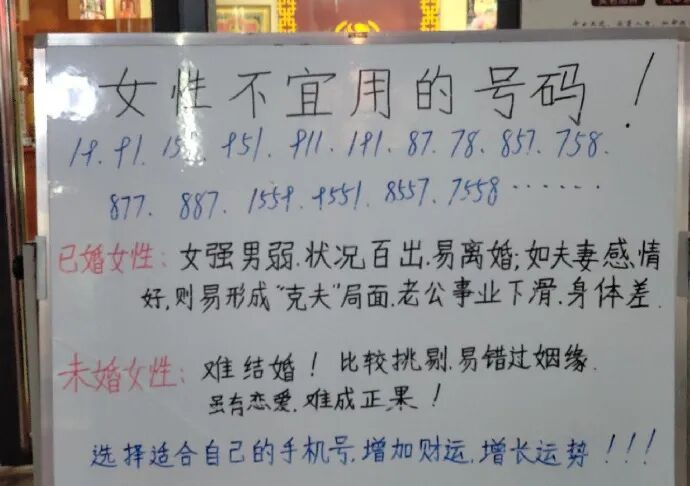 女性不宜用的号码！
19、91、159、951、911、191、87、78、857、758、
877、887、1559、9551、8557、7558……
已婚女性：女强男弱、状况百出、易离婚；如夫妻感情
好，则易形成“克夫”局面、老公事业下滑、身体差、
未婚女性：难结婚！比较挑剔、易错过姻缘、
虽有恋爱、难成正果！
选择适合自己的手机号，增加财运，增长运势！！！